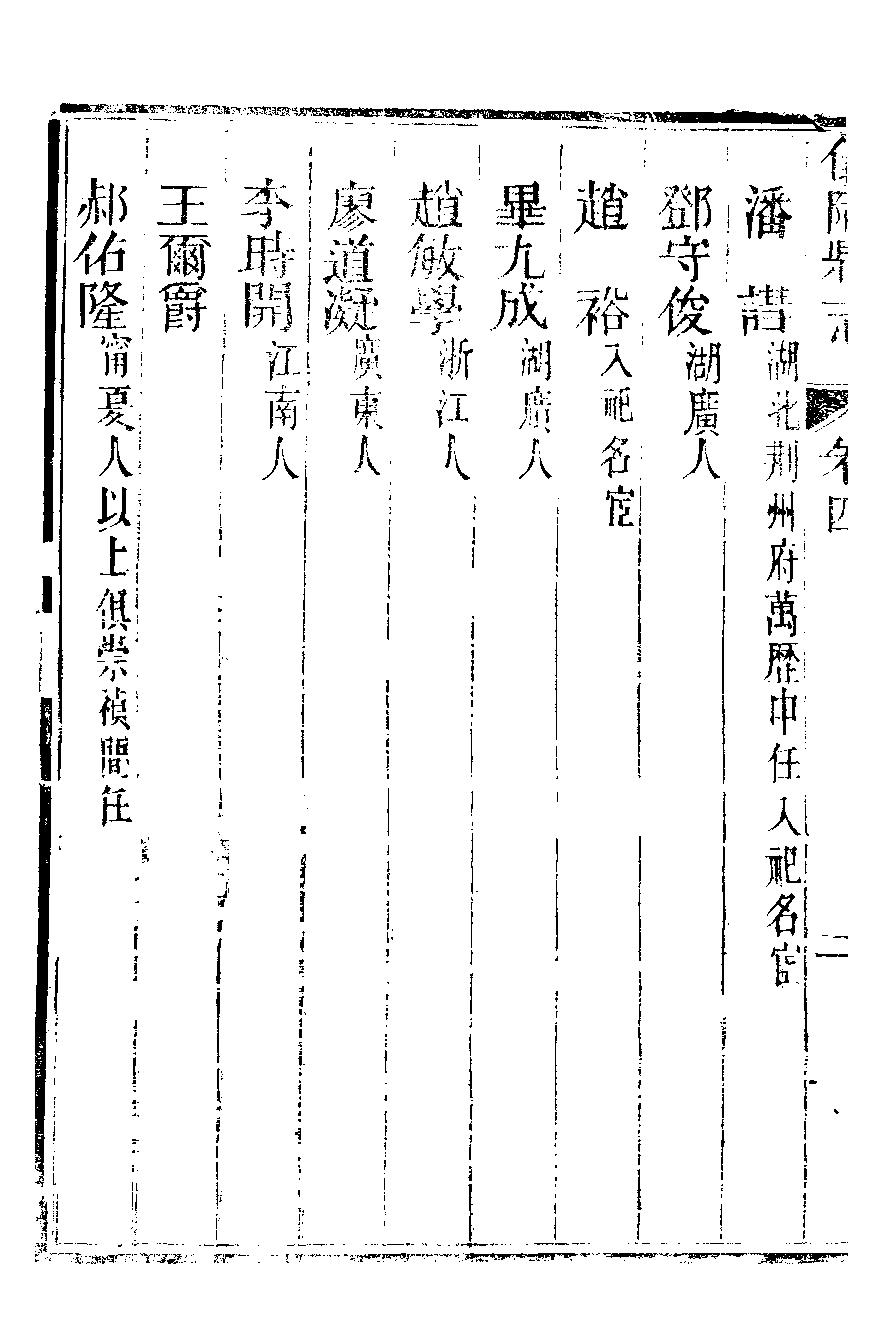 縣志 卷四 二
潘 湖北荆州府萬歷中任入祀名宦
鄧守俊 湖廣人
趙 裕 入祀名宦
畢九成 湖廣人
趙敏學 浙江人
廖道凝 廣東人
李時開 江南人
王爾爵
郝佑隆 甯夏人以上俱崇禎間任